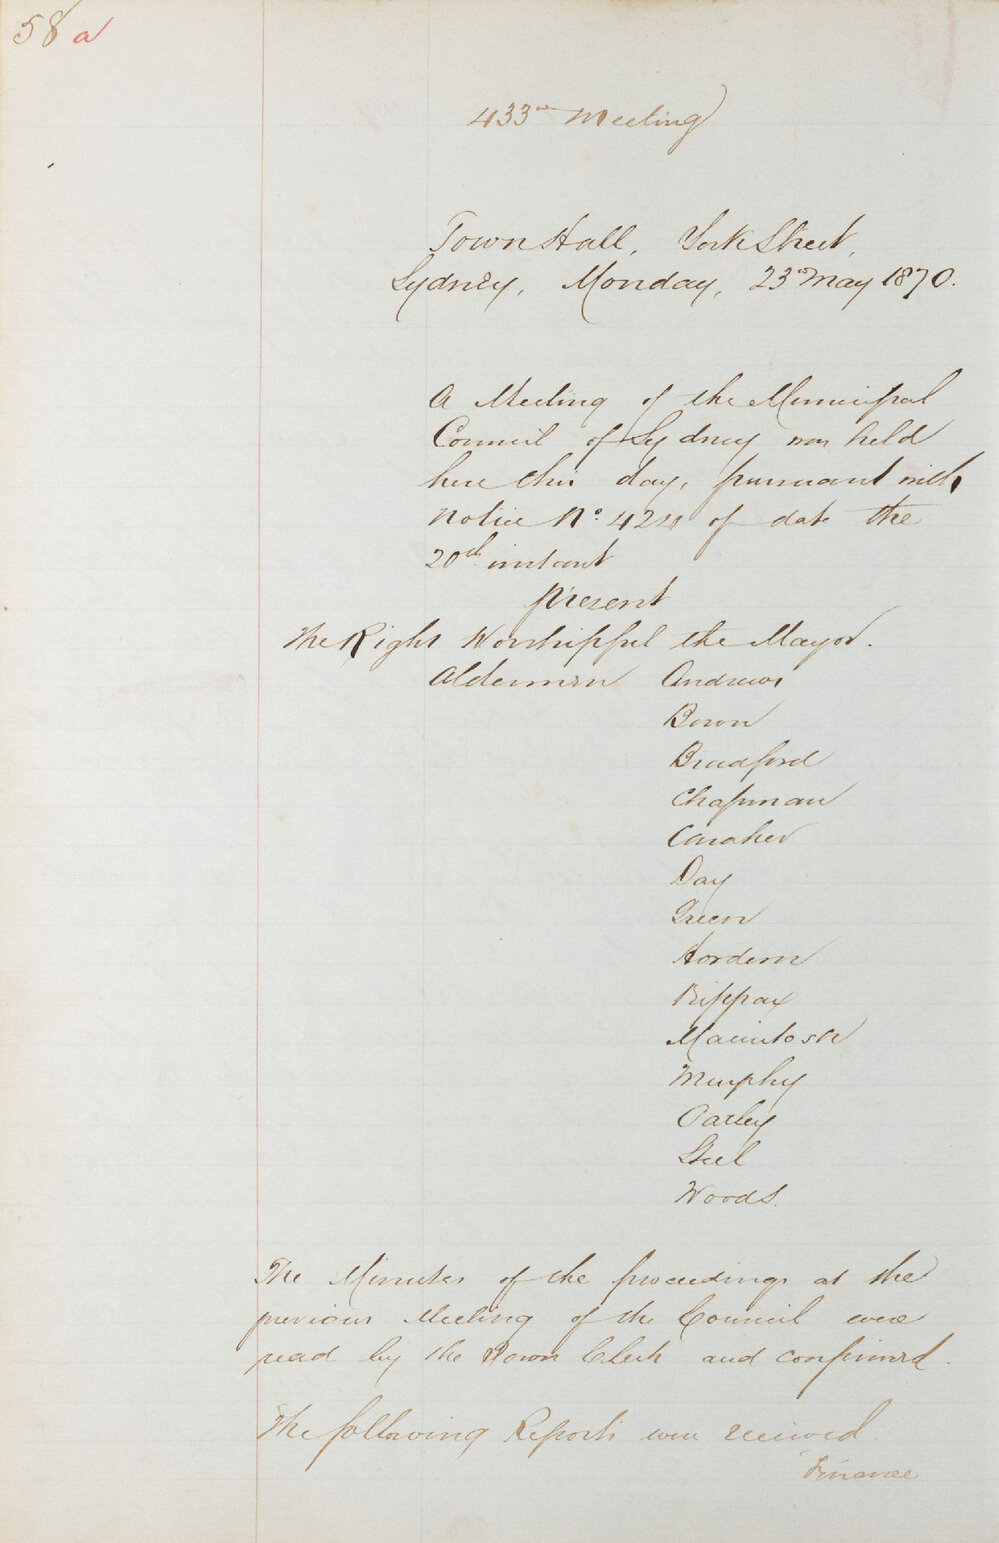 58 a
433rd Meeting
Town Hall, York Street,
Sydney, Monday, 23rd May 1870.
A Meeting of the Municipal
Council of Sydney was held
here this day, pursuant with
Notice No. 424 of date the
20th instant
Present
The Right Worshipful the Mayor.
Aldermen Andrews
Bown
Bradford
Chapman
Caraher
Day
Green
Hordern
Kippax
Macintosh
Murphy
Oatley
Steel
Woods.
The Minutes of the proceedings at the
previous Meeting of the Council were
read by the Town Clerk and confirmed.
The following Reports were received.
Finance